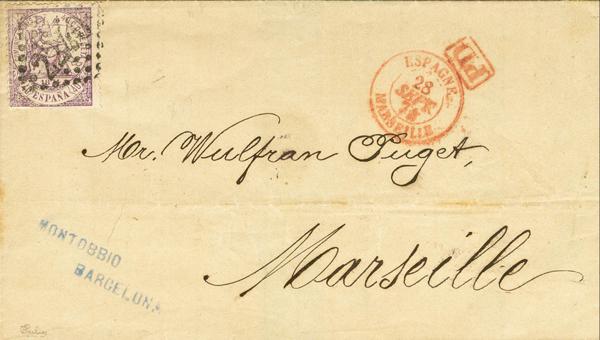 ESPAÑA
PD
ESPAGNE
28
SEPT
74
MARSEILLE
Mr. Wulfran Puget,
Marseille
MONTOBBIO
BARCELONA